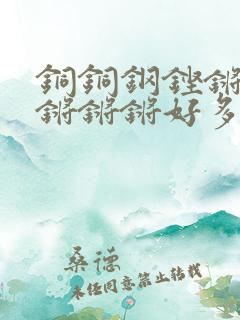 銅銅鋼鏗鏘
鏘鏘鏘好多
桑德
未经同意禁止转载